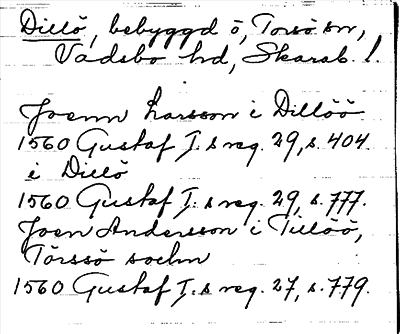 Dillö, bebyggd ö, Torsö sn,
Vadsbo hd, Skarab. l.
Joenn Larsson i Dillöö
1560 Gustaf I.s reg. 29, s. 404.
i Dillö
1560 Gustaf I.s reg. 29, s. 777.
Joen Andersson i Tillöö,
Törssö sochn
1560 Gustaf I.s reg. 27, s. 779.